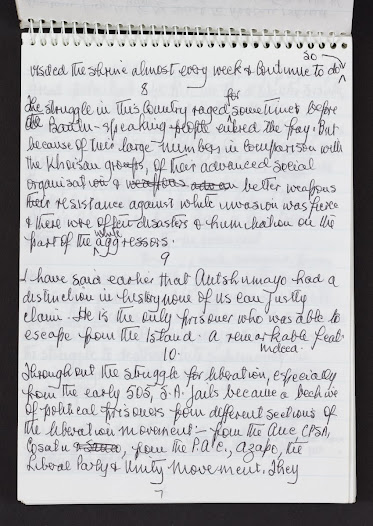 visited the shrine almost every week & continue to do so
8
The struggle in this country raged for sometimes before
the Bantu-speaking people entered the fray. But
because of their large numbers in comparison with
the Khoisan groups, of their advanced social
organisation & better weapons
their resistance against white invasion was fierce
& there were often disasters & humiliation on the
part of the white aggressors.
9
I have said earlier that Autshumayo had a
distinction in history none of us can justly
claim. He is the only prisoner who was able to
escape from the Island. A remarkable feat
indeed.
10.
Throughout the struggle for liberation, especially
from the early 50s, S.A. jails became a beehive
of political prisoners from different sections of
the liberation movement:- from the ANC CPSA,
Cosatu, from the P.A.C., Azapo, the
Liberal Party & Unity Movement. They
7